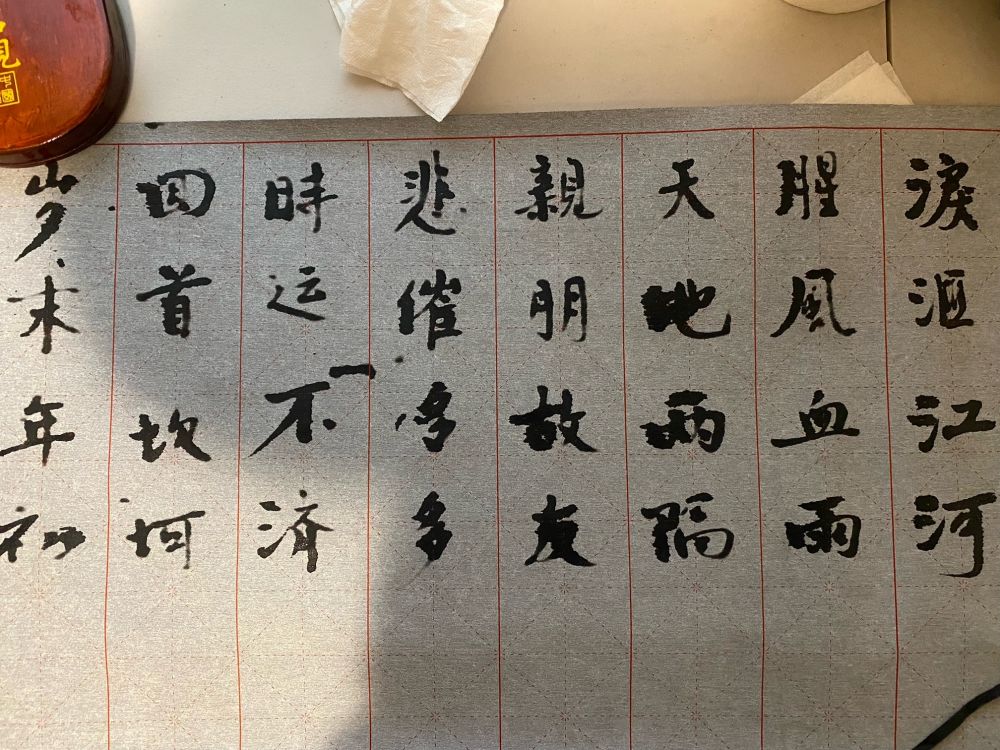 岁末年初
回首坎坷
時运不济
悲催多多
親朋故友
天地两隔
腥風血雨
淚洒江河
中國